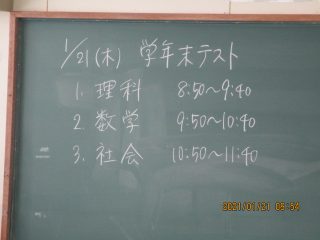 1/21(木) 学年末テスト
1. 理科 8:50~9:40
2. 数学 9:50~10:40
3. 社会 10:50~11:40
2021/01/21 08:34